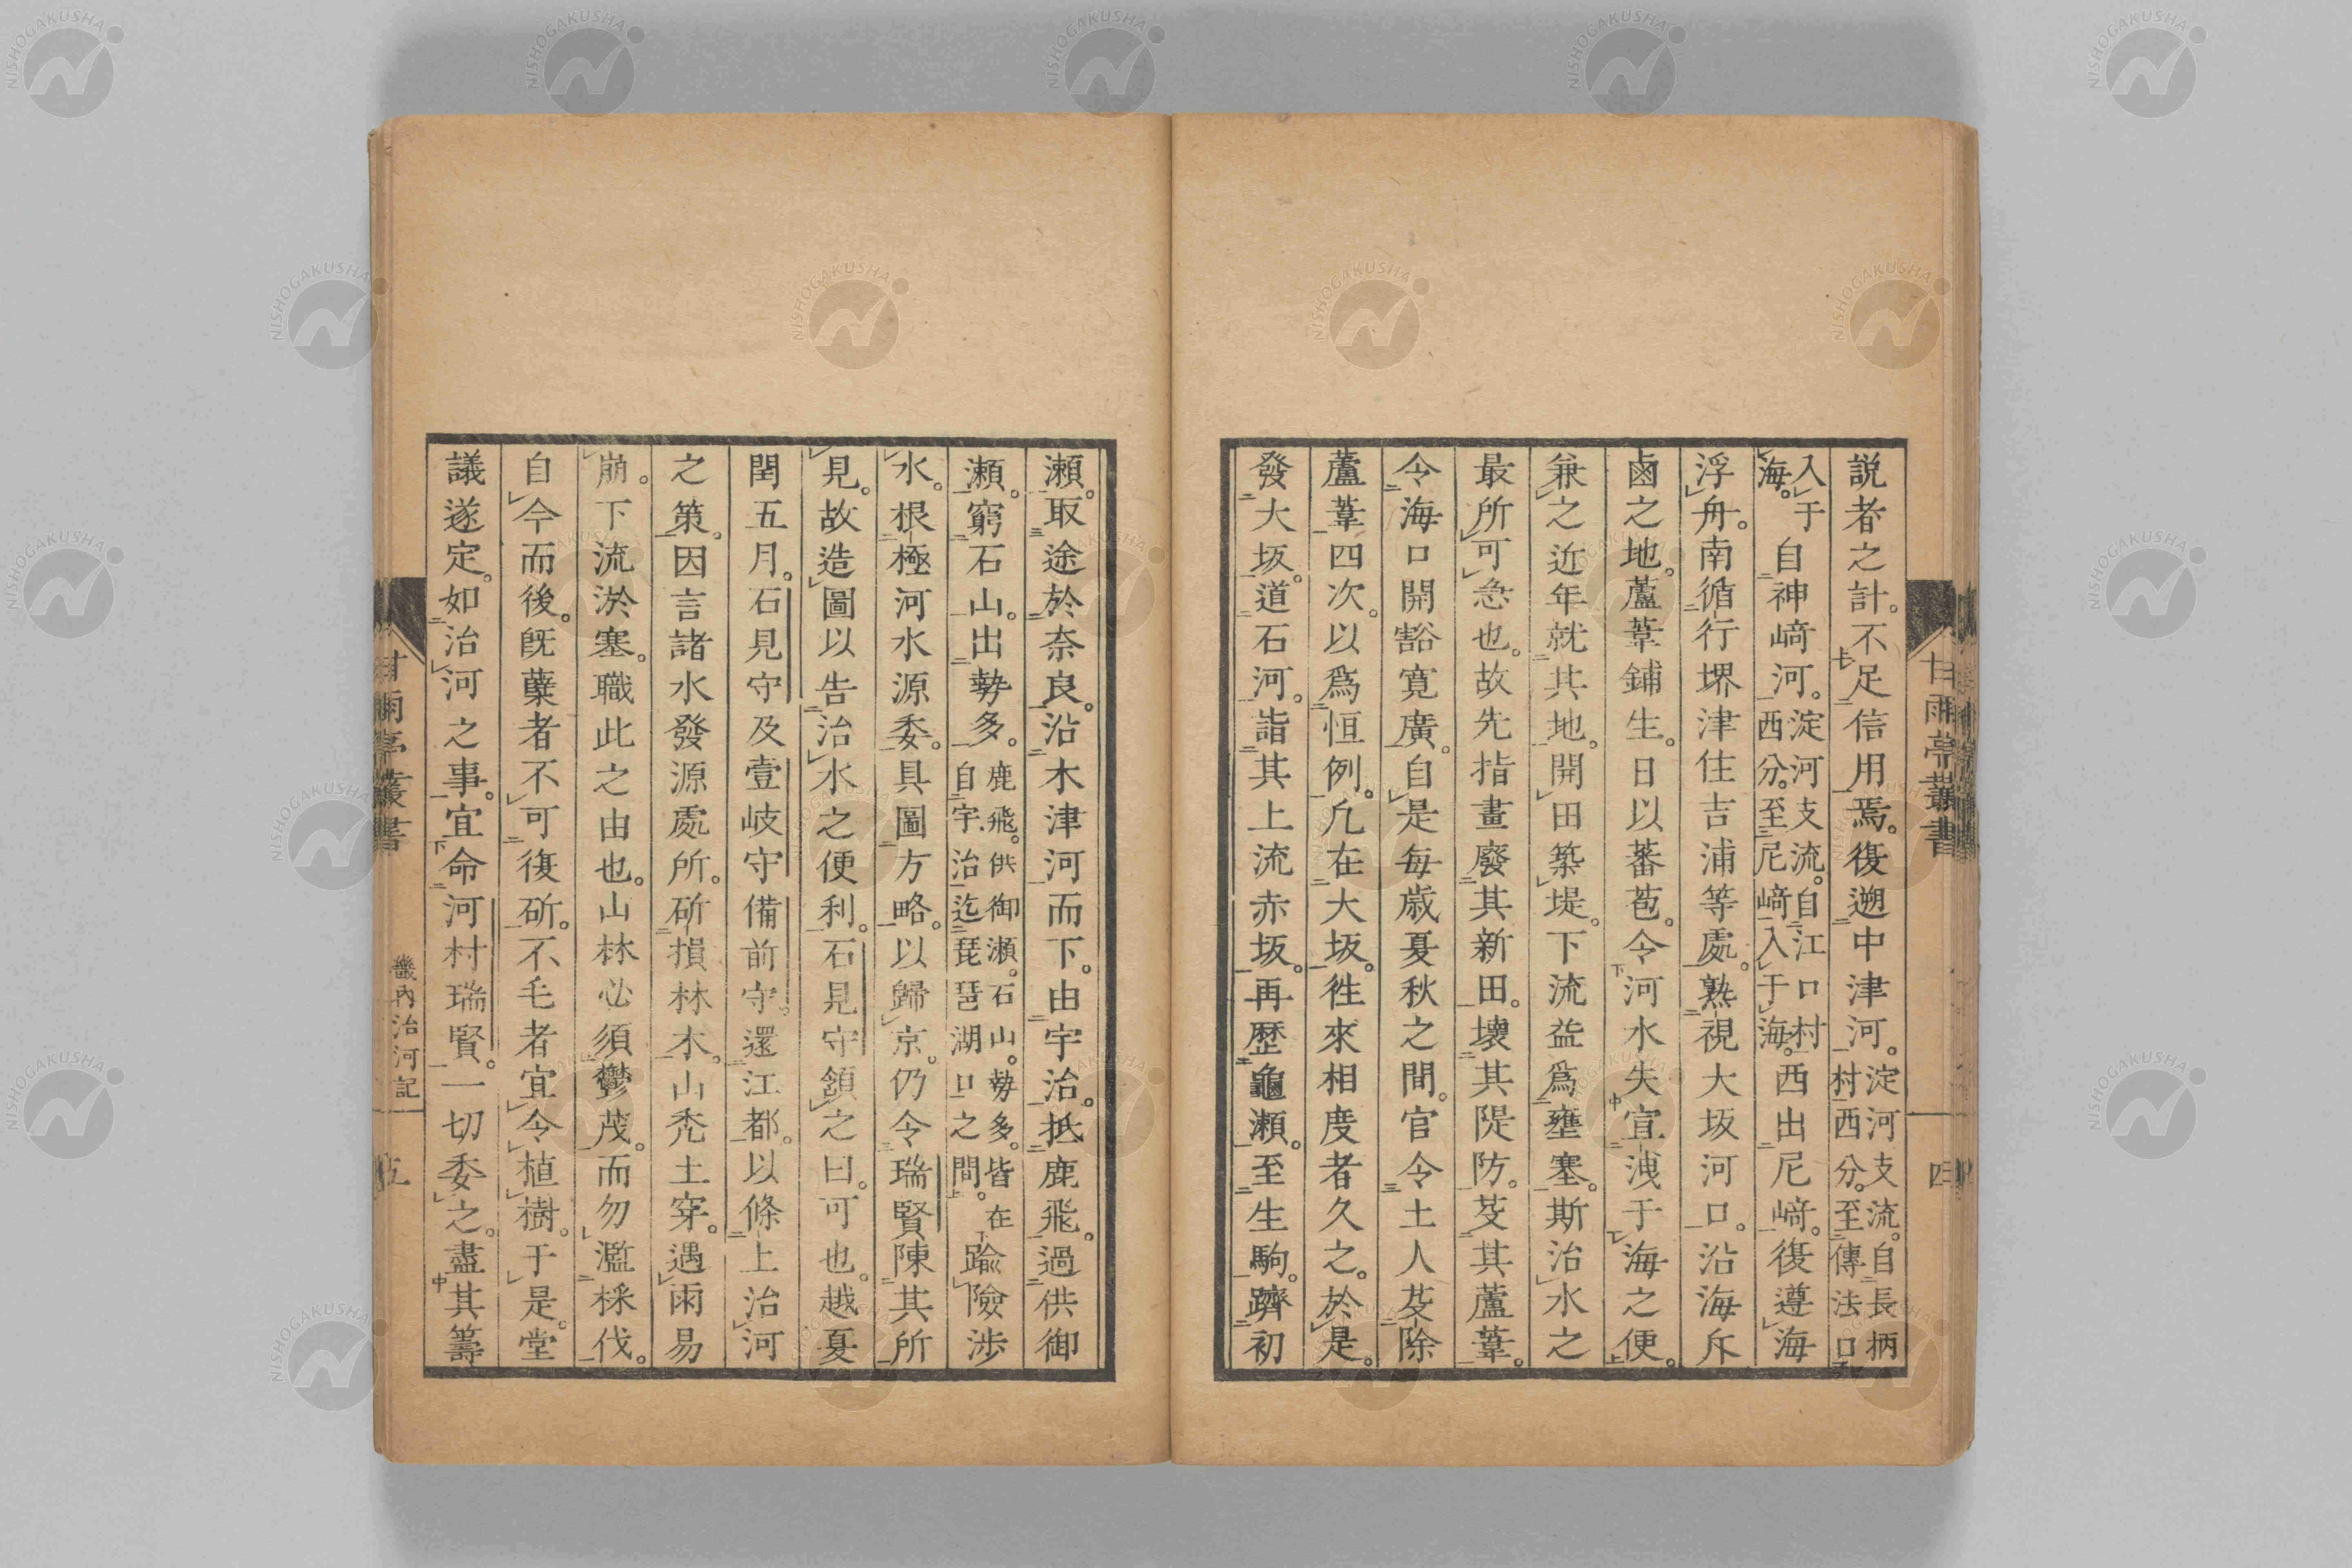 説者之計。不足信用焉。復遡中津河。淀河支流。自長柄村西分。至傳法口
入于海。自神﨑河。淀河支流。自江口村西分。至尼﨑入于海。西出尼﨑。復遵海
浮舟。南循行堺津住吉浦等處。熟視大坂河口。沿海斥
鹵之地。蘆葦鋪生。日以蕃苞。令河水失宣洩于海之便。
兼之近年就其地。開田築堤。下流益爲壅塞。斯治水之
最所可急也。故先指畫廢其新田。壞其隄防。芟其蘆葦。
令海口開豁寛廣。自是毎歳夏秋之間。官令土人芟除
蘆葦四次。以爲恒例。凢在大坂。徃來相度者久之。於是。
發大坂。道石河。詣其上流赤坂。再歴龜瀬。至生駒。躋初
甘雨亭叢書
四
瀬。取途於奈良。沿木津河而下。由宇治。抵鹿飛。過供御
瀬。窮石山。出勢多。鹿飛。供御瀬。石山。勢多。皆在自宇治迄琵琶湖口之間。踰險渉
水。根極河水源委。具圖方略。以歸京。仍令瑞賢陳其所
見。故造圖以告治水之便利。石見守頷之曰。可也。越夏
閏五月。石見守及壹岐守備前守。還江都。以條上治河
之策。因言諸水發源處所。斫損林木。山禿土穿。遇雨易
崩。下流淤塞。職此之由也。山林必須鬱茂。而勿濫採伐。
自今而後。既蘖者不可復斫。不毛者宜令植樹。于是。堂
議遂定。如治河之事。宜命河村瑞賢。一切委之。盡其籌
甘雨亭叢書
畿内治河記
五
NISHOGAKUSHA